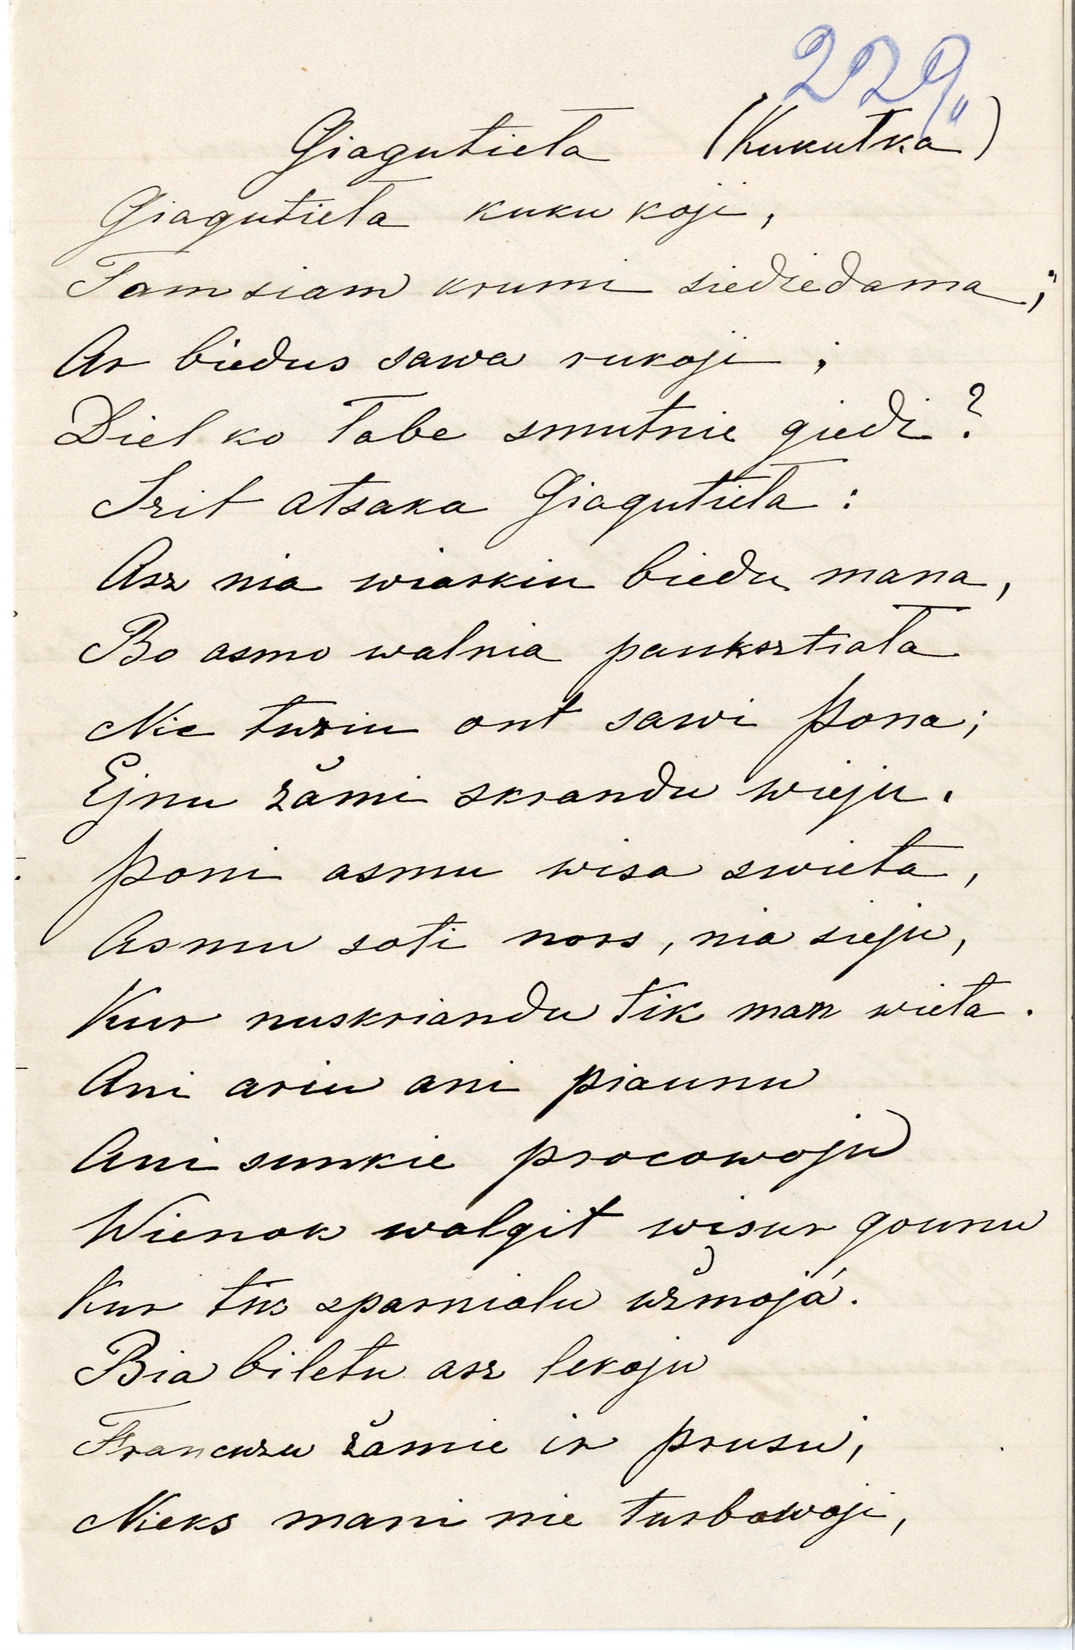 229"
Giagutieta (Kukutka)
Giagutieta kukukoji,
Tamsiam krumi siediedama;
Ar biedus sawa rukoji;
Diel ko Tabe smutnie giedi?
Szit atsaka Giagutieta:
Asz nia wiarkiu biedu mana,
Bo asmo walnia pauksztiata
Nie turiu ont sawi pona;
Ejnu žami skrandu wieju.
Poni asmu wisa swieta,
Asmu soti nors, nia sieju,
Kur nuskriandu tik man wieta.
Ani ariu ani piaunu
Ani sunkie procowoju
Wienok walgit wisur gounu
Kur tis sparnialu užmojá.
Bia biletu asz lekoju
Francuzu žamie ir prusu,
Nieks mani nie turbowoji,